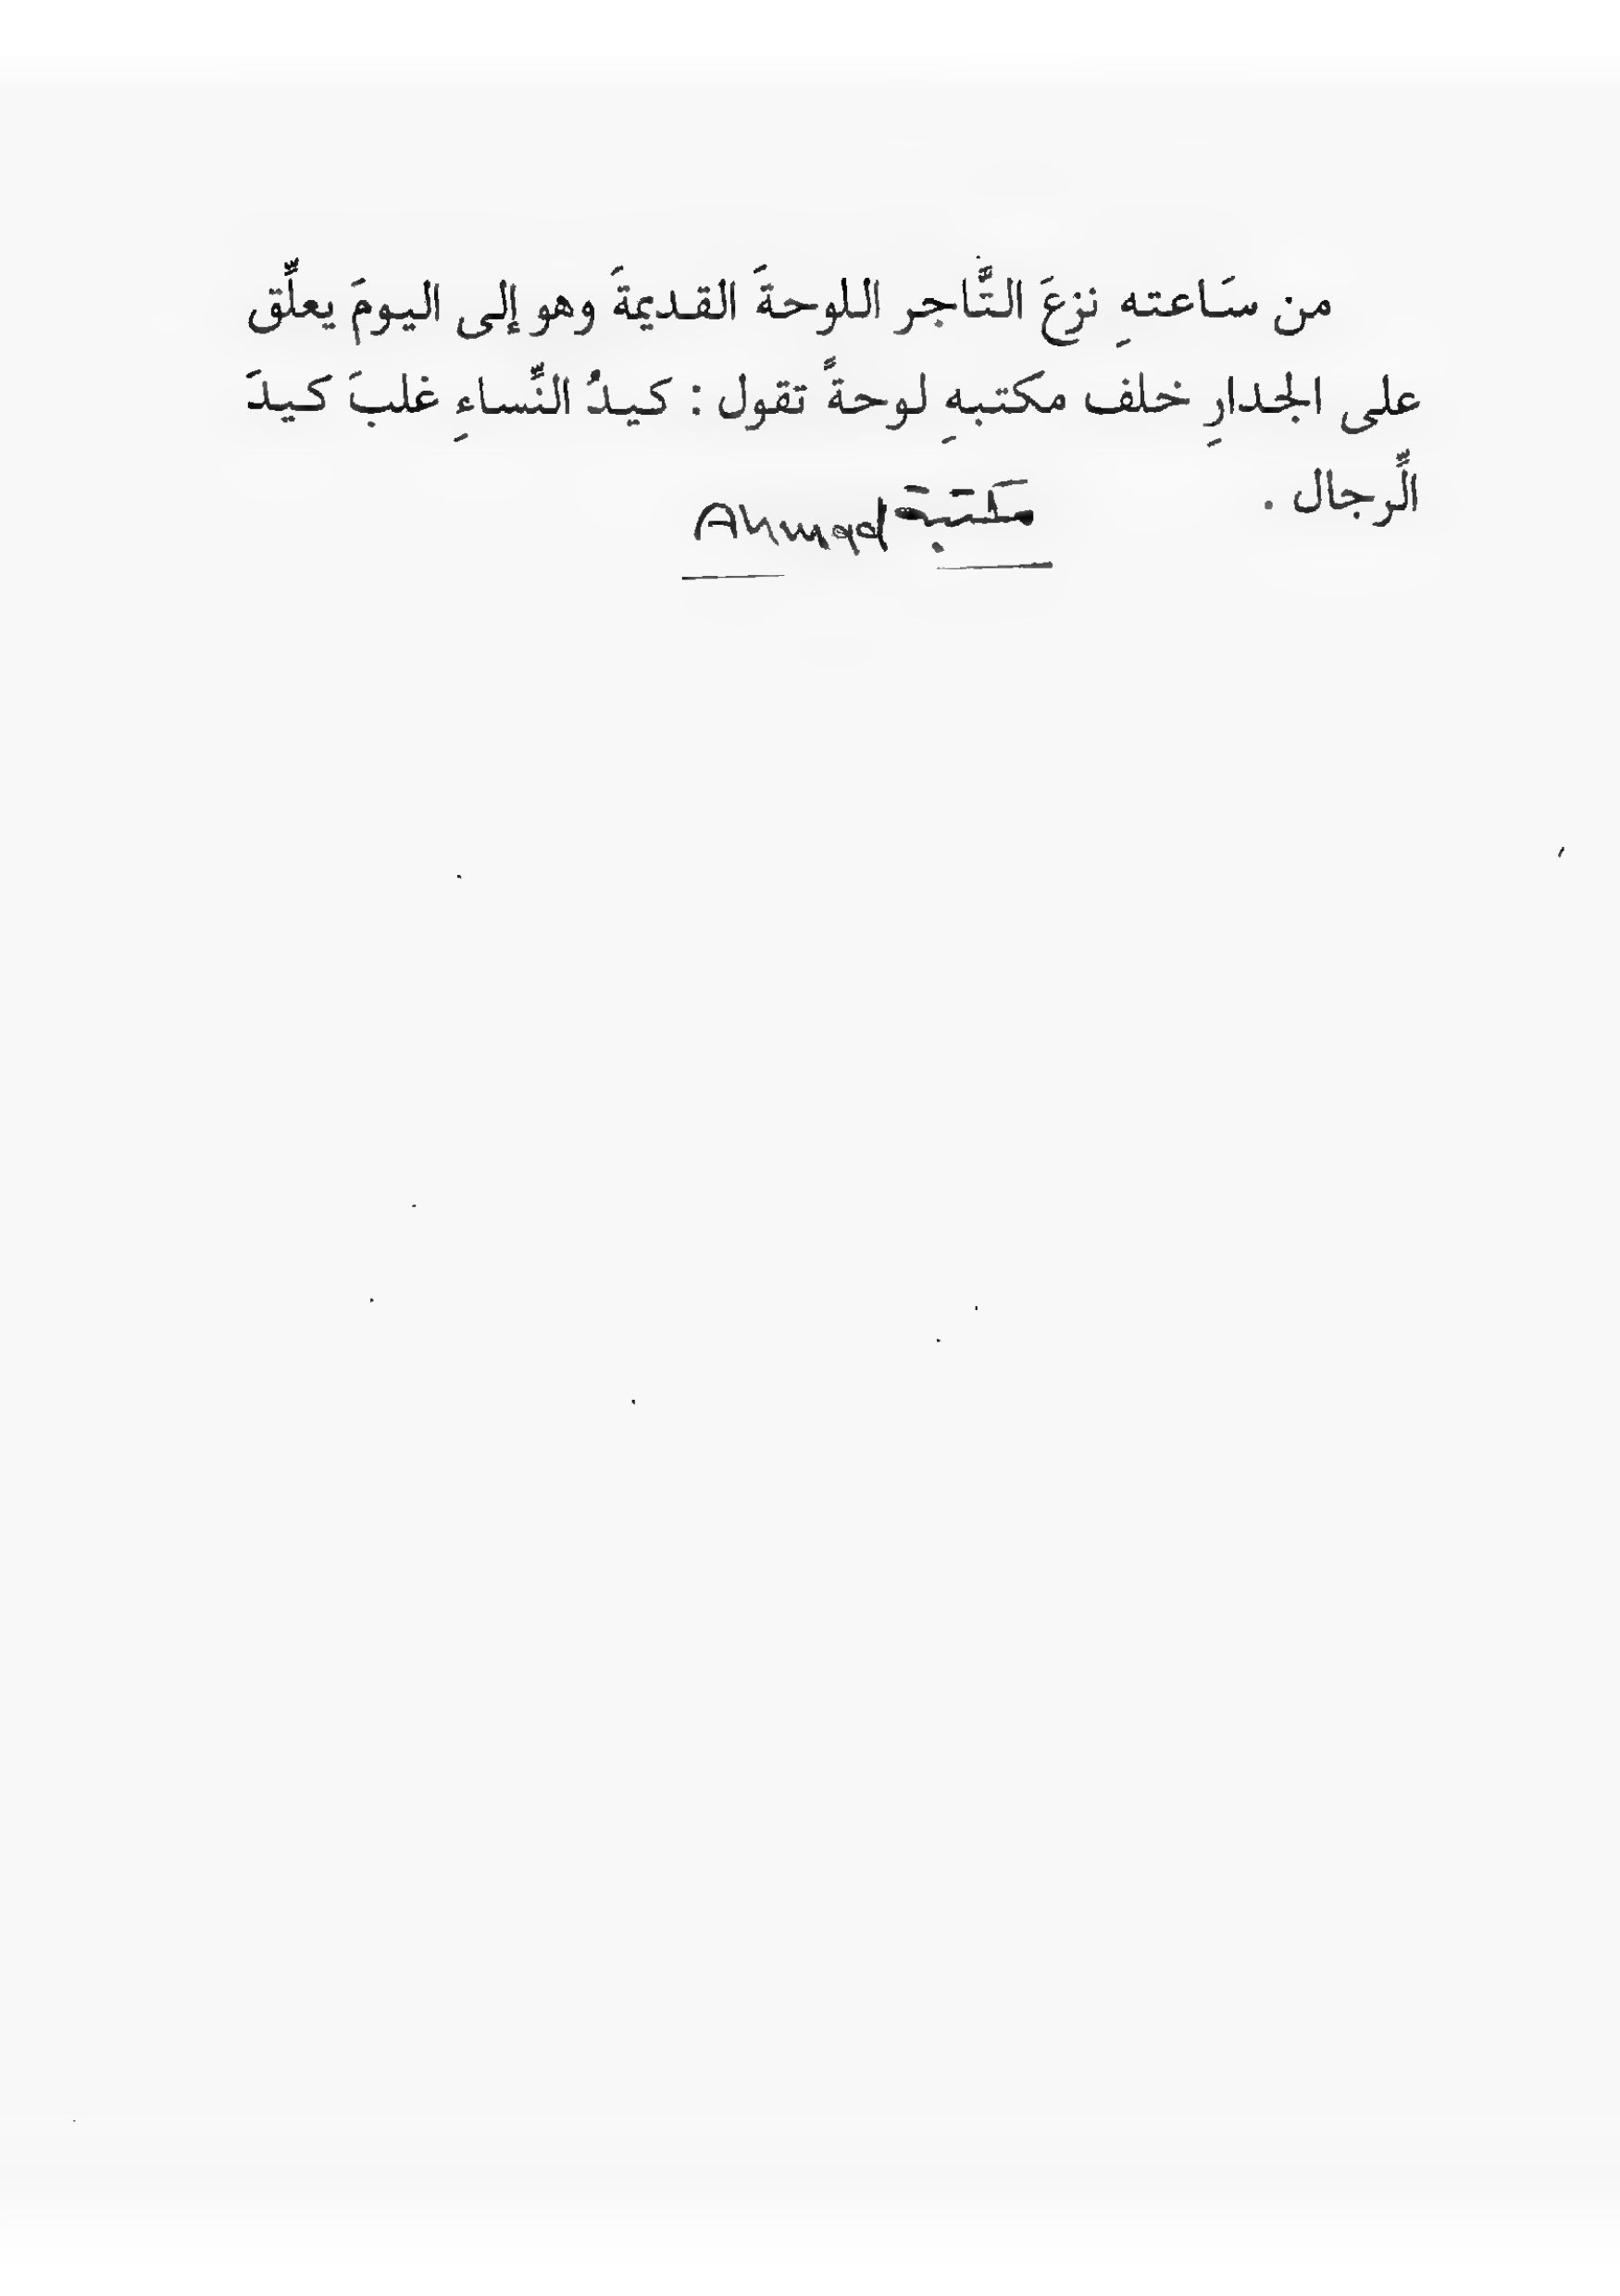 من سَاعتهِ نزعَ التَّاجر اللوحةَ القديمةَ وهو إلى اليومَ يعلِّق
على الجدارِ خلف مكتبهِ لوحةً تقول : كيدُ النِّساءِ غلبَ كيدَ
الِّرجال .
مكتبة Ahmad